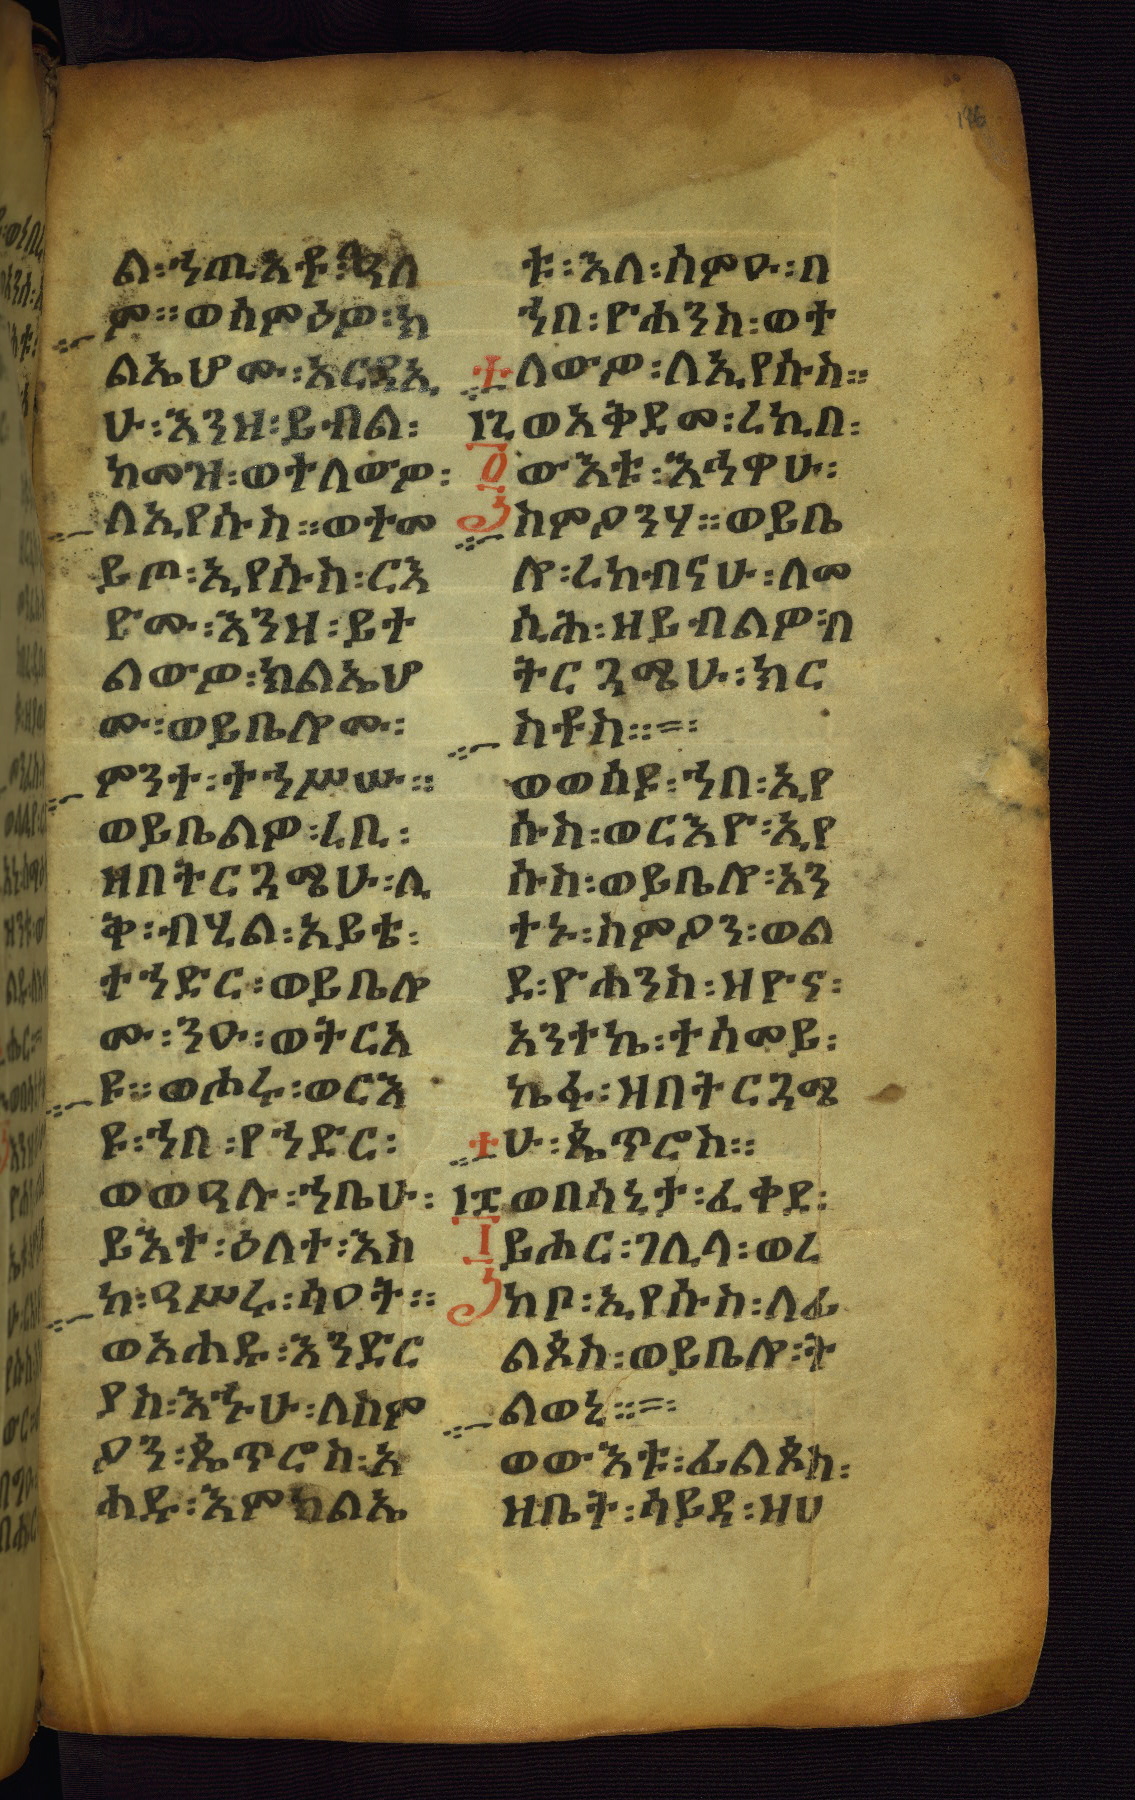 ል፡ኀጢአቶ፡ዓለ
ም። ወሰምዕዎ፡ክ
ልኤሆሙ፡አርዳኢ
ሁ፡እንዘ፡ይብል፡
ከመዝ፡ወተለውዎ፡
ለኢየሱስ። ወተመ
ይጦ፡ኢየሱስ፡ርእ
ዮሙ፡እንዘ፡ይተ
ልውዎ፡ክልኤሆ
ሙ፡ወይቤሎሙ፡
ምንተ፡ተኀሥሡ።
ወይቤልዎ፡ረቢ፡
ዘበትርጓሜሁ፡ሊ
ቅ፡ብሂል፡አይቴ፡
ተኀድር፡ወይቤሎ
ሙ፡ንዑ፡ወትርአ
ዩ። ወሖሩ፡ወርእ
ዩ፡ኀበ፡የኀድር፡
ወወዓሉ፡ኀቤሁ፡
ይእተ፡ዕለተ፡እስ
ከ፡ዓሥሩ፡ሳዐት።
ወአሐዱ፡እንድር
ያስ፡እኁሁ፡ለስም
ዖን፡ጴጥሮስ፡አ
ሐዱ፡እምክልኤ
ቱ፡እለ፡ሰምዑ፡በ
ኀበ፡ዮሐንስ፡ወተ
ለውዎ፡ለኢየሱስ።
፲፯ ወአቅደመ፡ረኪበ፡
ውእቱ፡እኅዋሁ፡
ስምዖንሃ። ወይቤ
ሎ፡ረከብናሁ፡ለመ
ሲሕ፡ዘይብልዎ፡በ
ትርጓሜሁ፡ክር
ስቶስ።
ወወሰዶ፡ኀበ፡ኢየ
ሱስ፡ወርእዮ፡ኢየ
ሱስ፡ወይቤሎ፡አን
ተኑ፡ስምዖን፡ወል
ደ፡ዮሐንስ፡ዘዮና፡
አንተኬ፡ተሰመይ፡
ኬፋ፡ዘበትርጓሜ
ሁ፡ጴጥሮስ።
፲፰ ወበሳኒታ፡ፈቀደ፡
፲ ይሐር፡ገሊላ፡ወረ
ከቦ፡ኢየሱስ፡ለፊ
ልጶስ፡ወይቤሎ፡ት
ልወኒ።
ወውእቱ፡ፊልጶስ፡
ዘቤት፡ሳይዳ፡ዝሀ